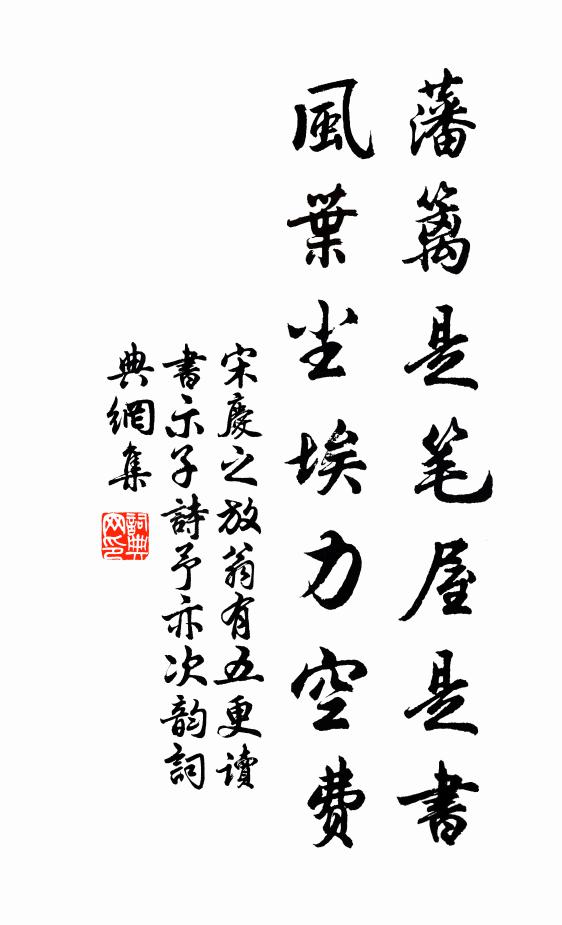 藩籬是笔屋是書
風葉尘埃力空費
宋慶之放翁有五更讀
書示子詩予亦次韵詞
典網集
詞典
网印